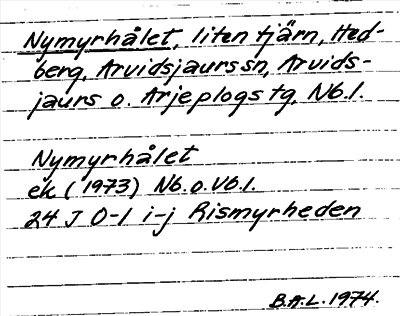 Nymyrhålet, liten tjärn, Hed-
berg, Arvidsjaurs sn, Arvids-
jaurs o. Arjeplogs tg, Nb.l.
Nymyrhålet
ek (1973) Nb. o. Vb.l.
24 J 0-1 i-j Rismyrheden
B.A.L. 1974.